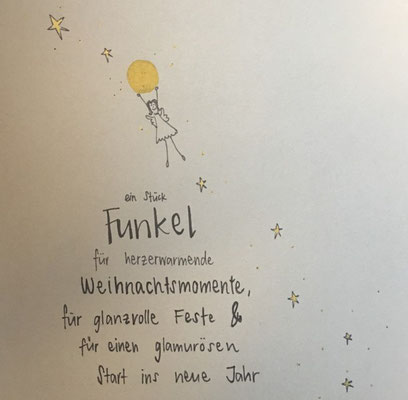 ein Stück
Funkel
für herzerwärmende
Weihnachtsmomente,
für glanzvolle Feste &
für einen glamurösen
Start ins neue Jahr